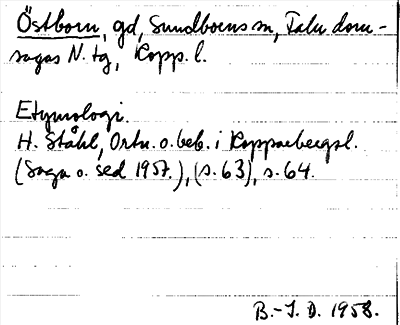 Östborn, gd, Sundborns sn, Falu dom-
sagas N. tg, Kopp. l.
Etymologi.
H. Ståhl, Ortn. o. beb. i Kopparbergsl.
(Saga o. sed 1957.), (s. 63), s. 64.
B.-I. D. 1958.